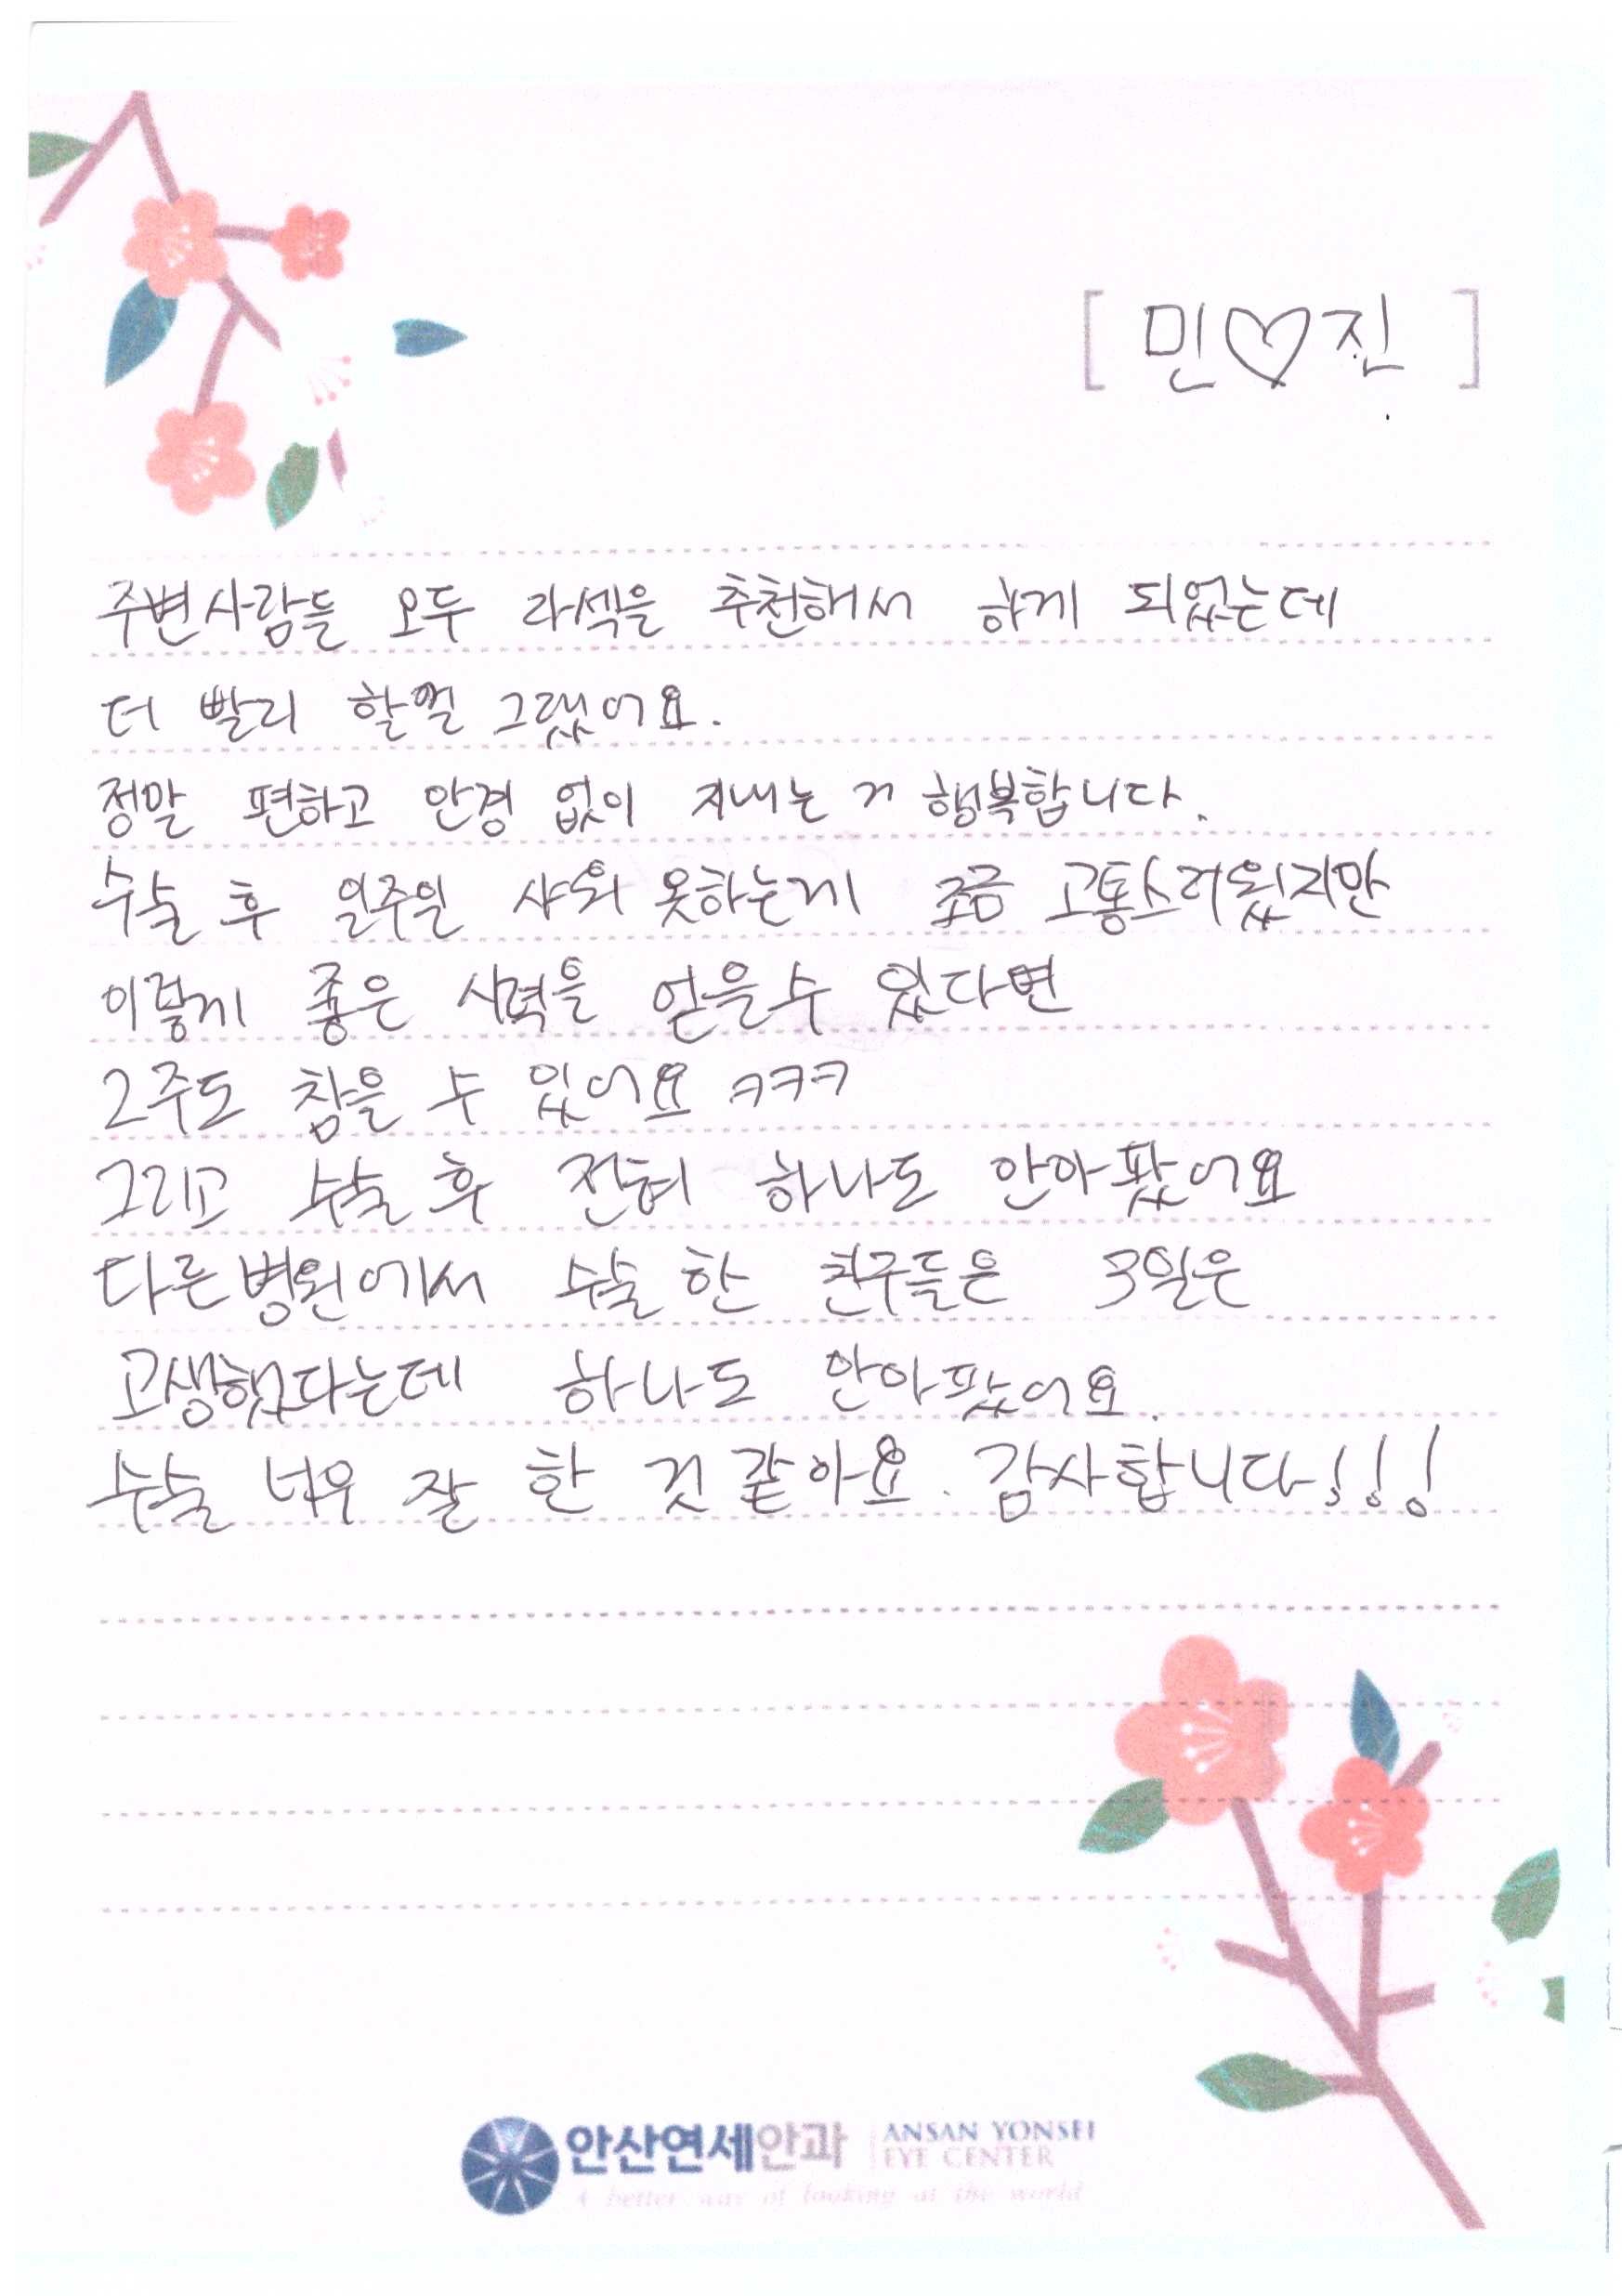 [ 민♡진 ]
주변사람들 모두 라섹을 추천해서 하게 되었는데
더 빨리 할껄 그랬어요.
정말 편하고 안경 없이 지내는 거 행복합니다.
수술 후 일주일 샤워 못하는게 조금 고통스러웠지만
이렇게 좋은 시력을 얻을수 있다면
2주도 참을 수 있어요 ㅋㅋㅋ
그리고 수술 후 전혀 하나도 안아팠어요
다른병원에서 수술 한 친구들은 3일은
고생했다는데 하나도 안아팠어요.
수술 너무 잘 한 것 같아요. 감사합니다!!!
안산연세안과 ANSAN YONSEI
EYE CENTER
A better way of looking at the world